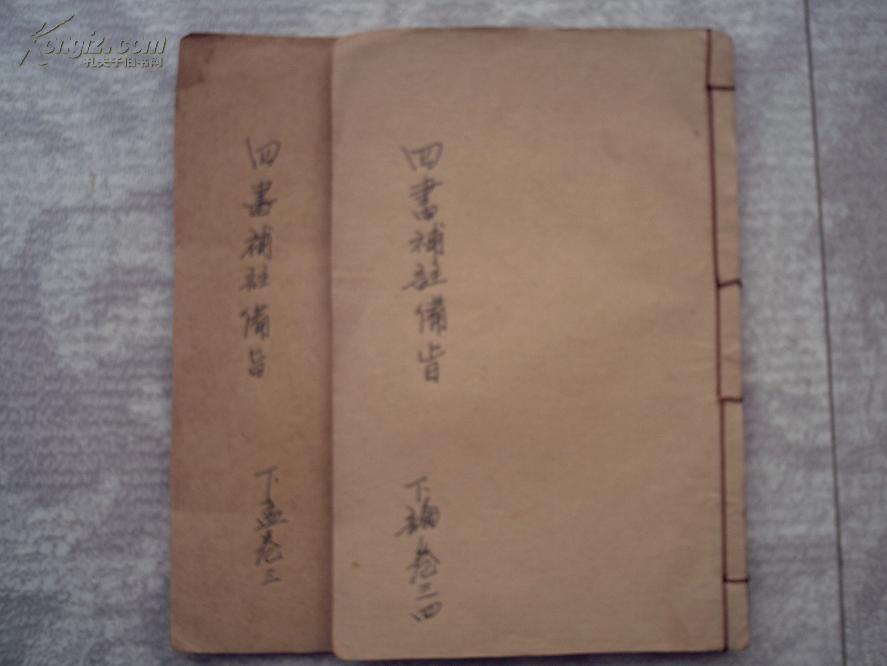 Kongfz.com
孔夫子旧书网
四書補註備旨
下論卷三四
四書補註備旨
下孟卷三